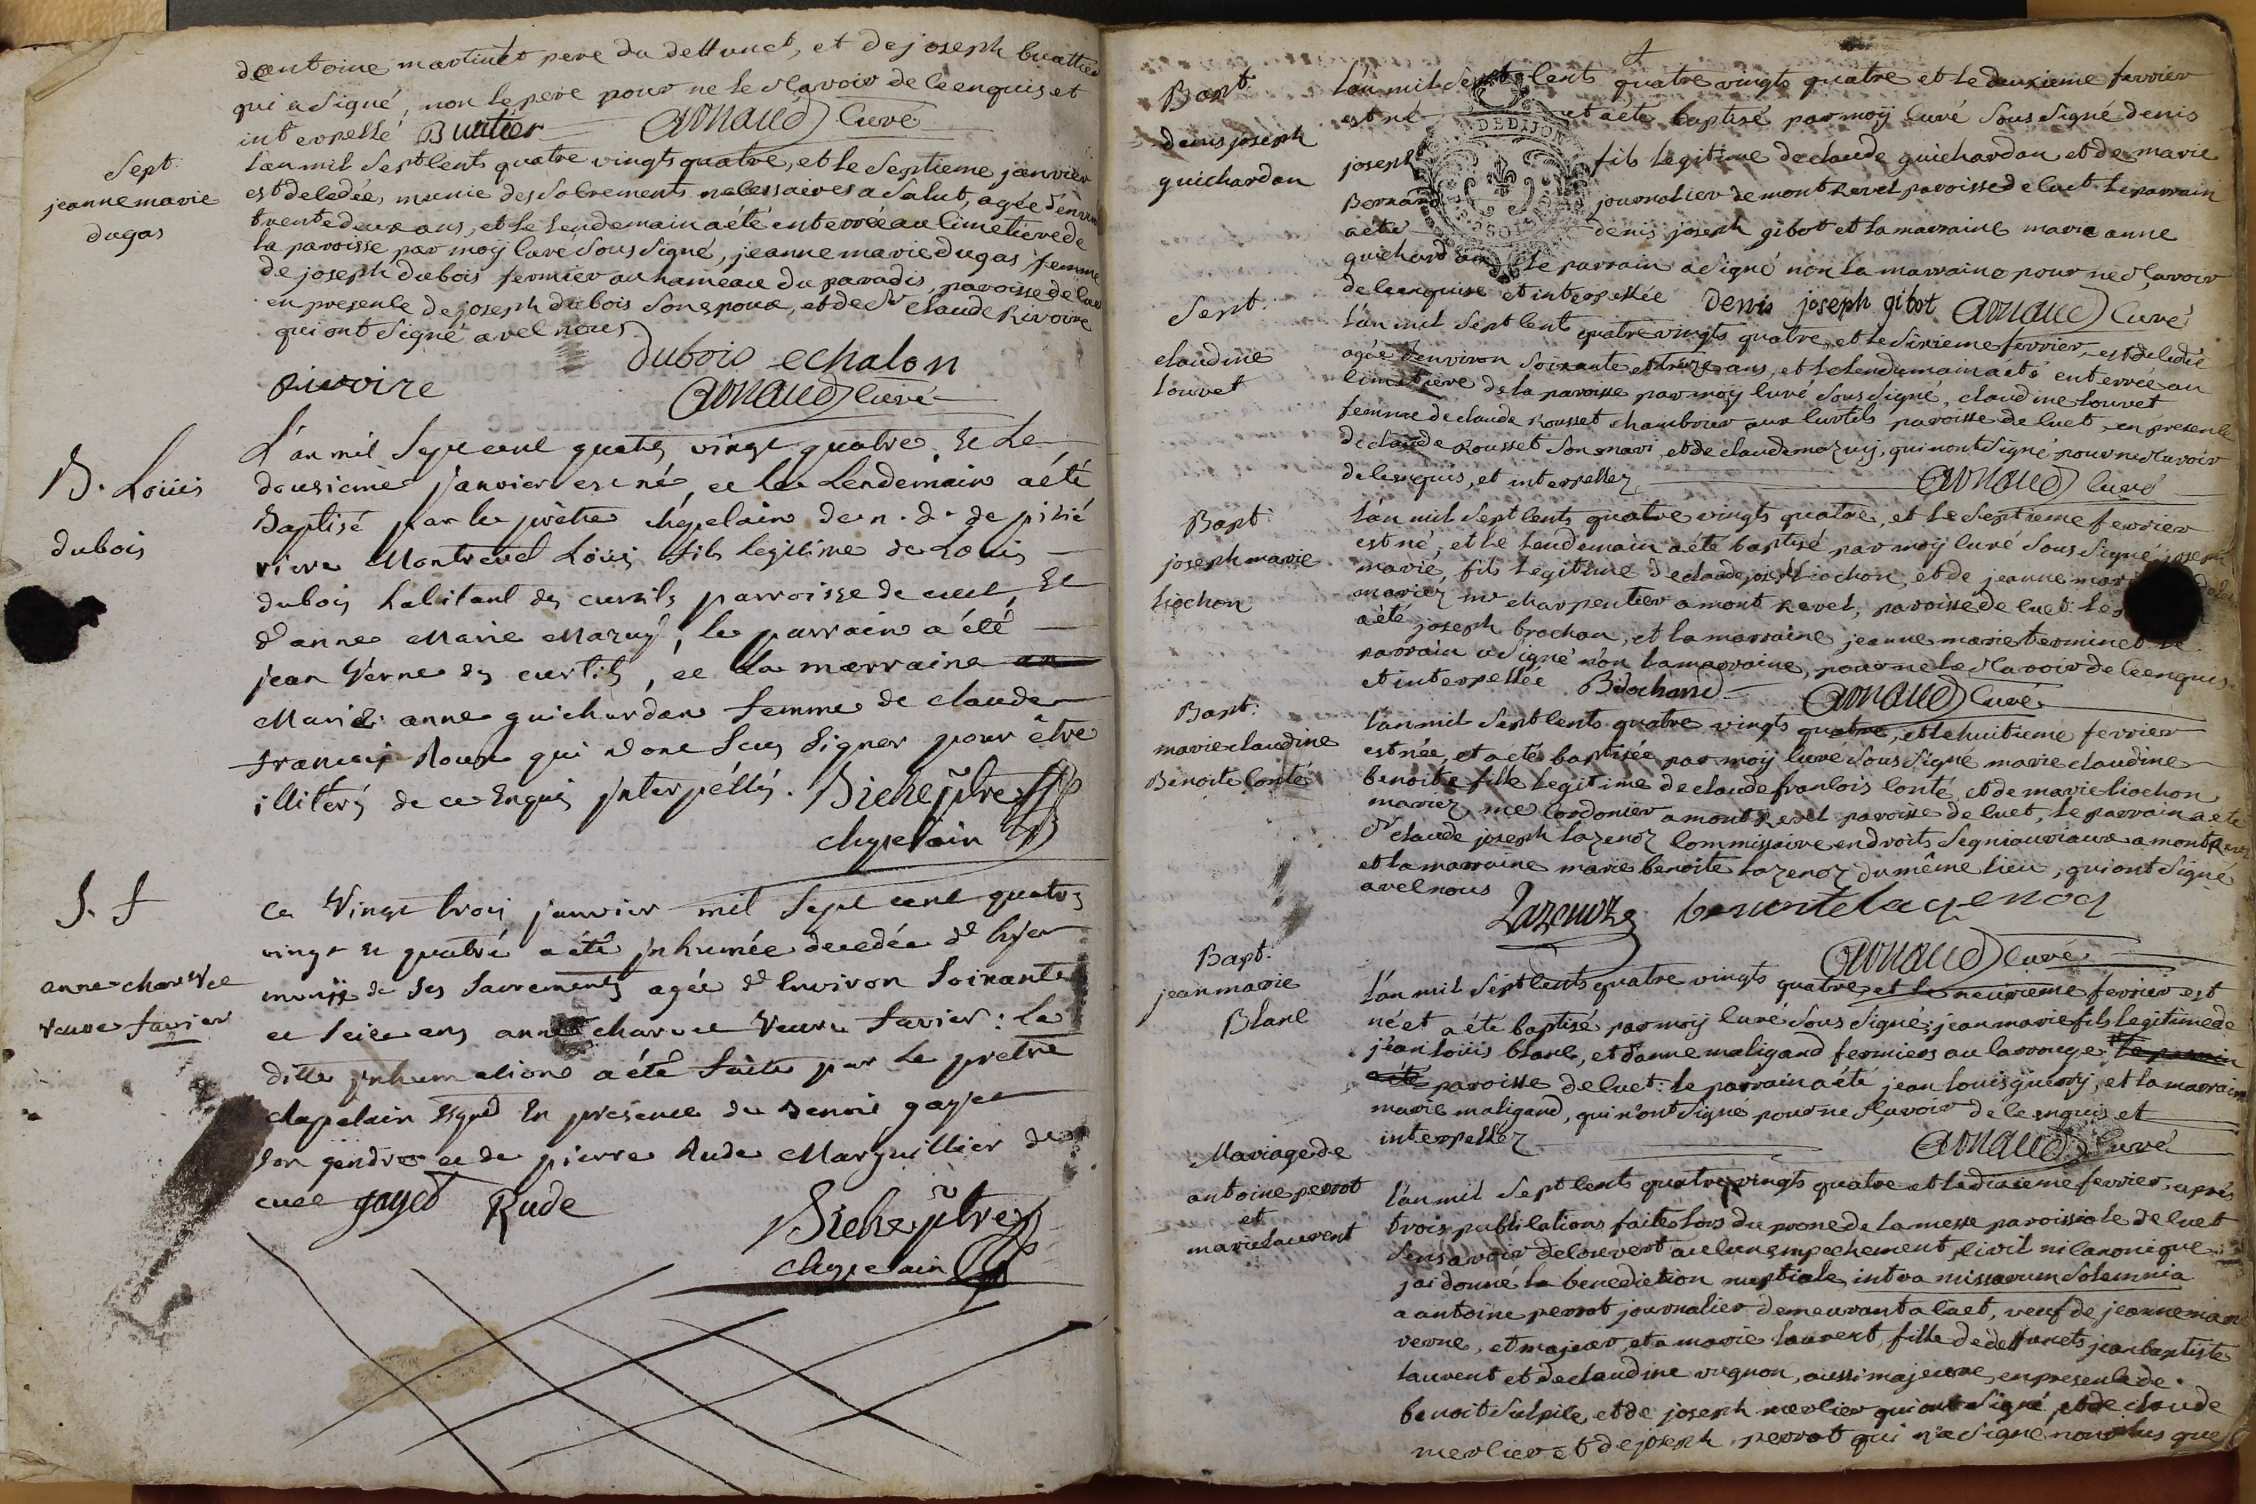 d'antoine martinet pere du deffunct, et de joseph buattier
qui a signé, non le pere pour ne le sçavoir de ce enquis et
interpellé Buatier arnaud curé
Sept.
jeanne marie
dugas
l'an mil sept cents quatre vingts quatre, et le septieme janvier
est decedée, munie des sacrements necessaires a salut, agée d'environ
trente deux ans, et le lendemain a été enterrée au cimetiere de
la paroisse par moÿ curé soussigné, jeanne marie dugas femme
de joseph dubois fermier au hameau du paradis, paroisse de cuet
en presence de joseph dubois son epoux, et de Sr claude Rivoire
qui ont signé avec nous
dubois echalon
Rivoire arnaud curé
B. Loüis
dubois
L'an mil sept cent quatre vingt quatre, et le
dousieme janvier est né, et le lendemain a été
Baptisé par le prêtre chapelain de n. d. de pitié
riere Montrevel Loüis fils legitime de Loüis
dubois habitant des curtils parroisse de cuet, et
d'anne Marie Mazuÿ, le parrain a été
jean Verne des curtils, et la marraine
Marie anne guichardan femme de claude
françois Roux qui n'ont sçu signer pour être
illiterés de ce Enquis jnterpéllés. Biche ptre
chapelain
S. f
anne charvet
veuve favier
Ce Vingt trois janvier mil sept cent quatre
vingt et quatre a été jnhumée decedée d'hyer
munie de ses sacrements agée d'Environ soixante
et seize ans anne charvet veuve favier: la
ditte jnhumation a été faite par le prêtre
chapelain ssgné En presence de Benoit gayet
son gendre et de pierre Rude Marguillier de
cuet gayet Rude
Biche ptre
chapelain
Bapt.
denis joseph
guichardan
l'an mil sept cents quatre vingts quatre et le deuxieme fevrier
est né et a été baptisé par moÿ curé soussigné denis
DE DIJON
joseph fils legitime de claude guichardan et de marie
Bernard journalier de montrevel paroisse de cuet. le parrain
a été denis joseph gibot et la marraine marie anne
guichardan le parrain a signé non la marraine pour ne sçavoir
de ce enquise et interpellée Denis joseph gibot arnaud curé
Sept.
claudine
Louvet
l'an mil sept cents quatre vingts quatre, et le sixieme fevrier, est decedée
agée d'environ soixante et treze ans, et le lendemain a été enterrée au
cimetiere de la paroisse par moÿ curé soussigné, claudine Louvet
femme de claude Rousset chambrier aux curtils paroisse de cuet en presence
de claude Rousset son mari, et de claude mazuy, qui n'ont signé pour ne sçavoir
de ce enquis, et interpellez arnaud curé
Bapt.
joseph marie
Liochon
l'an mil sept cents quatre vingts quatre, et le septieme fevrier
est né, et le lendemain a été baptisé par moÿ curé soussigné joseph
marie, fils legitime de claude jos. Liochon, et de jeanne
mariez me charpentier a montrevel, paroisse de cuet. le
a été joseph brochan, et la marraine jeanne marie terminet le
parrain a signé non la marraine, pour ne le sçavoir de ce enquise
et interpellée Brochand arnaud curé
Bapt.
marie claudine
Benoite Conté
l'an mil sept cents quatre vingts quatre, et le huitieme fevrier
est née, et a été baptisée par moÿ curé soussigné marie claudine
benoite fille legitime de claude françois Conté, et de marie Liochon
mariez, me cordonier a montrevel paroisse de cuet, le parrain a été
Sr claude joseph Lazenoz commissaire en droits segniauriaux a montrevel
et la marraine marie benoite Lazenoz du même lieu, qui ont signé
avec nous Lazenoz benoite lazenoz
arnaud curé
Bapt.
jean marie
Blanc
l'an mil sept cents quatre vingts quatre, et le neuvieme fevrier est
né et a été baptisé par moÿ curé soussigné; jean marie fils legitime de
jean loüis blanc, et d'anne maligand fermiers au larronge le parrain
a été paroisse de cuet: le parrain a été jean louis guerry, et la marraine
marie maligand, qui n'ont signé pour ne sçavoir de ce enquis et
interpellez arnaud curé
Mariage de
antoine perrot
et
marie laurent
l'an mil sept cents quatre vingts quatre et le dixieme fevrier, aprés
trois publications faites lors du prone de la messe paroissiale de cuet
sans avoir decouvert aucun empechement civil ni canonique
jai donné la benediction nuptiale intra missarum solemnia
a antoine perrot journalier demeurant a cuet, veuf de jeanne marie
verne, et majeur, et a marie laurent, fille de deffuncts jean baptiste
laurent et de claudine vugnon, aussi majeure, en presence de
benoit sulpice, et de joseph merlier qui ont signé, et de claude
merlier et de joseph perrot qui n'a signé non plus que